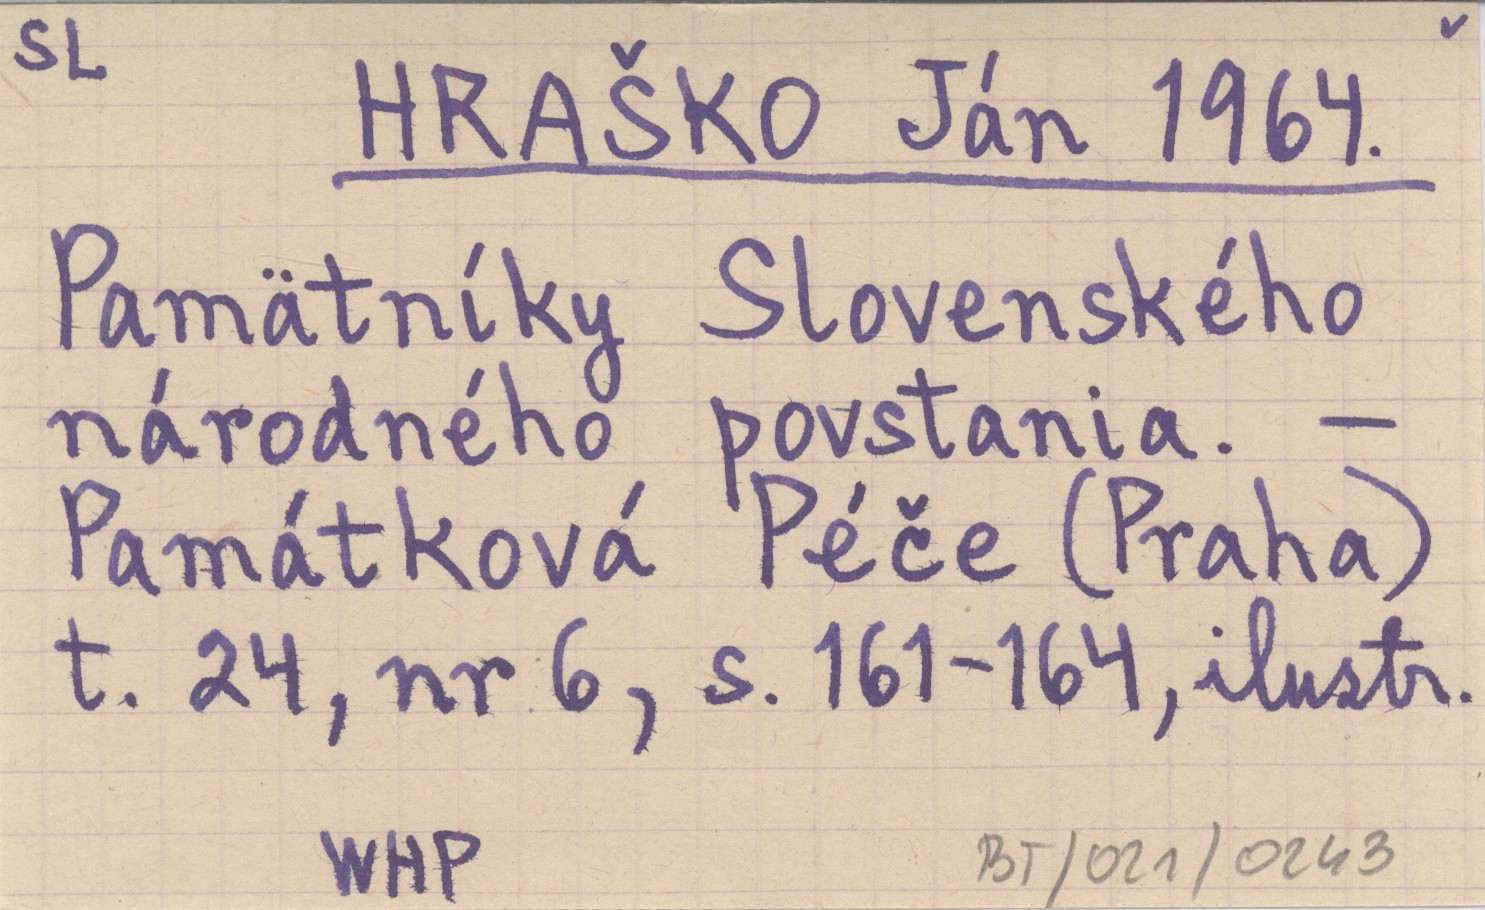 SL
HRAŠKO Ján 1964.
Pamätníky Slovenského
národného povstania. –
Památková Péče (Praha)
t. 24, nr 6, s. 161-164, ilustr.
WHP BT/021/0243